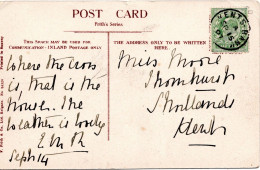 POST CARD
Frith's Series
THIS SPACE MAY BE USED FOR
COMMUNICATION—INLAND POSTAGE ONLY
THE ADDRESS ONLY TO BE WRITTEN
HERE.
Where the cross
is, that is the
house. The
weather is lovely
Sept 14
Miss Moore
Thornhurst
Shortlands
Kent